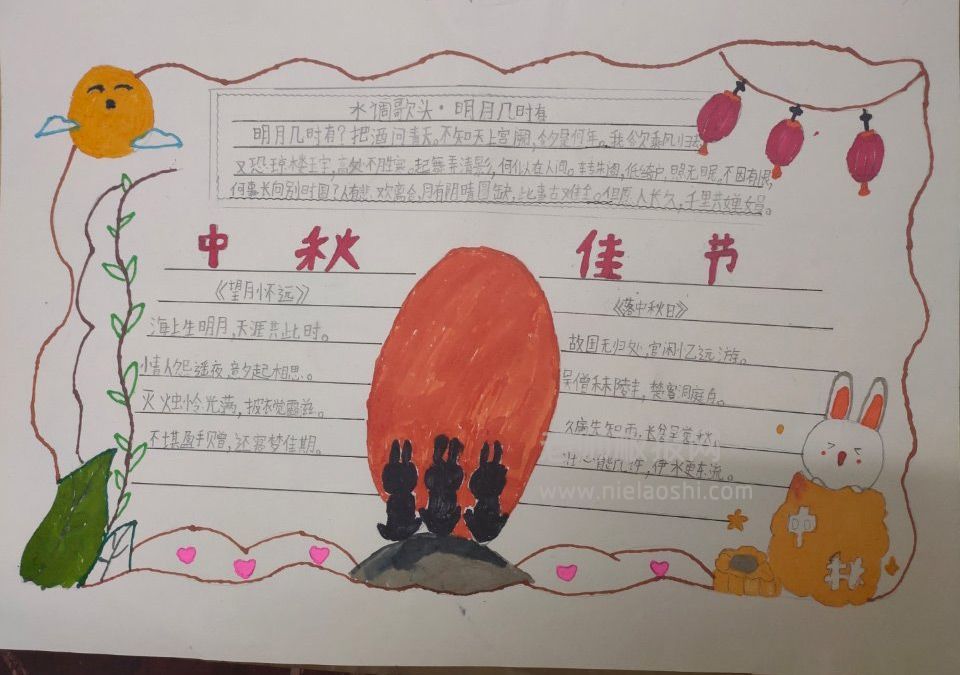 水调歌头·明月几时有
明月几时有?把酒问青天。不知天上宫阙,今夕是何年。我欲乘风归去
又恐琼楼玉宇,高处不胜寒。起舞弄清影,何似在人间。转朱阁,低绮户,照无眠。不因有恨,
何事长向别时圆?人有悲欢离合,月有阴晴圆缺,此事古难全。但愿人长久,千里共婵娟。
中秋佳节
《望月怀远》
海上生明月,天涯共此时。
情人怨遥夜,竟夕起相思。
灭烛怜光满,披衣觉露滋。
不堪盈手赠,还寝梦佳期。
《落中秋日》
故国无归处,官闲忆远游。
吴僧秣陵寺,楚客洞庭舟。
久废先知雨,长
壮心能几许,伊水更东流。
中
秋
www.nielaoshi.com